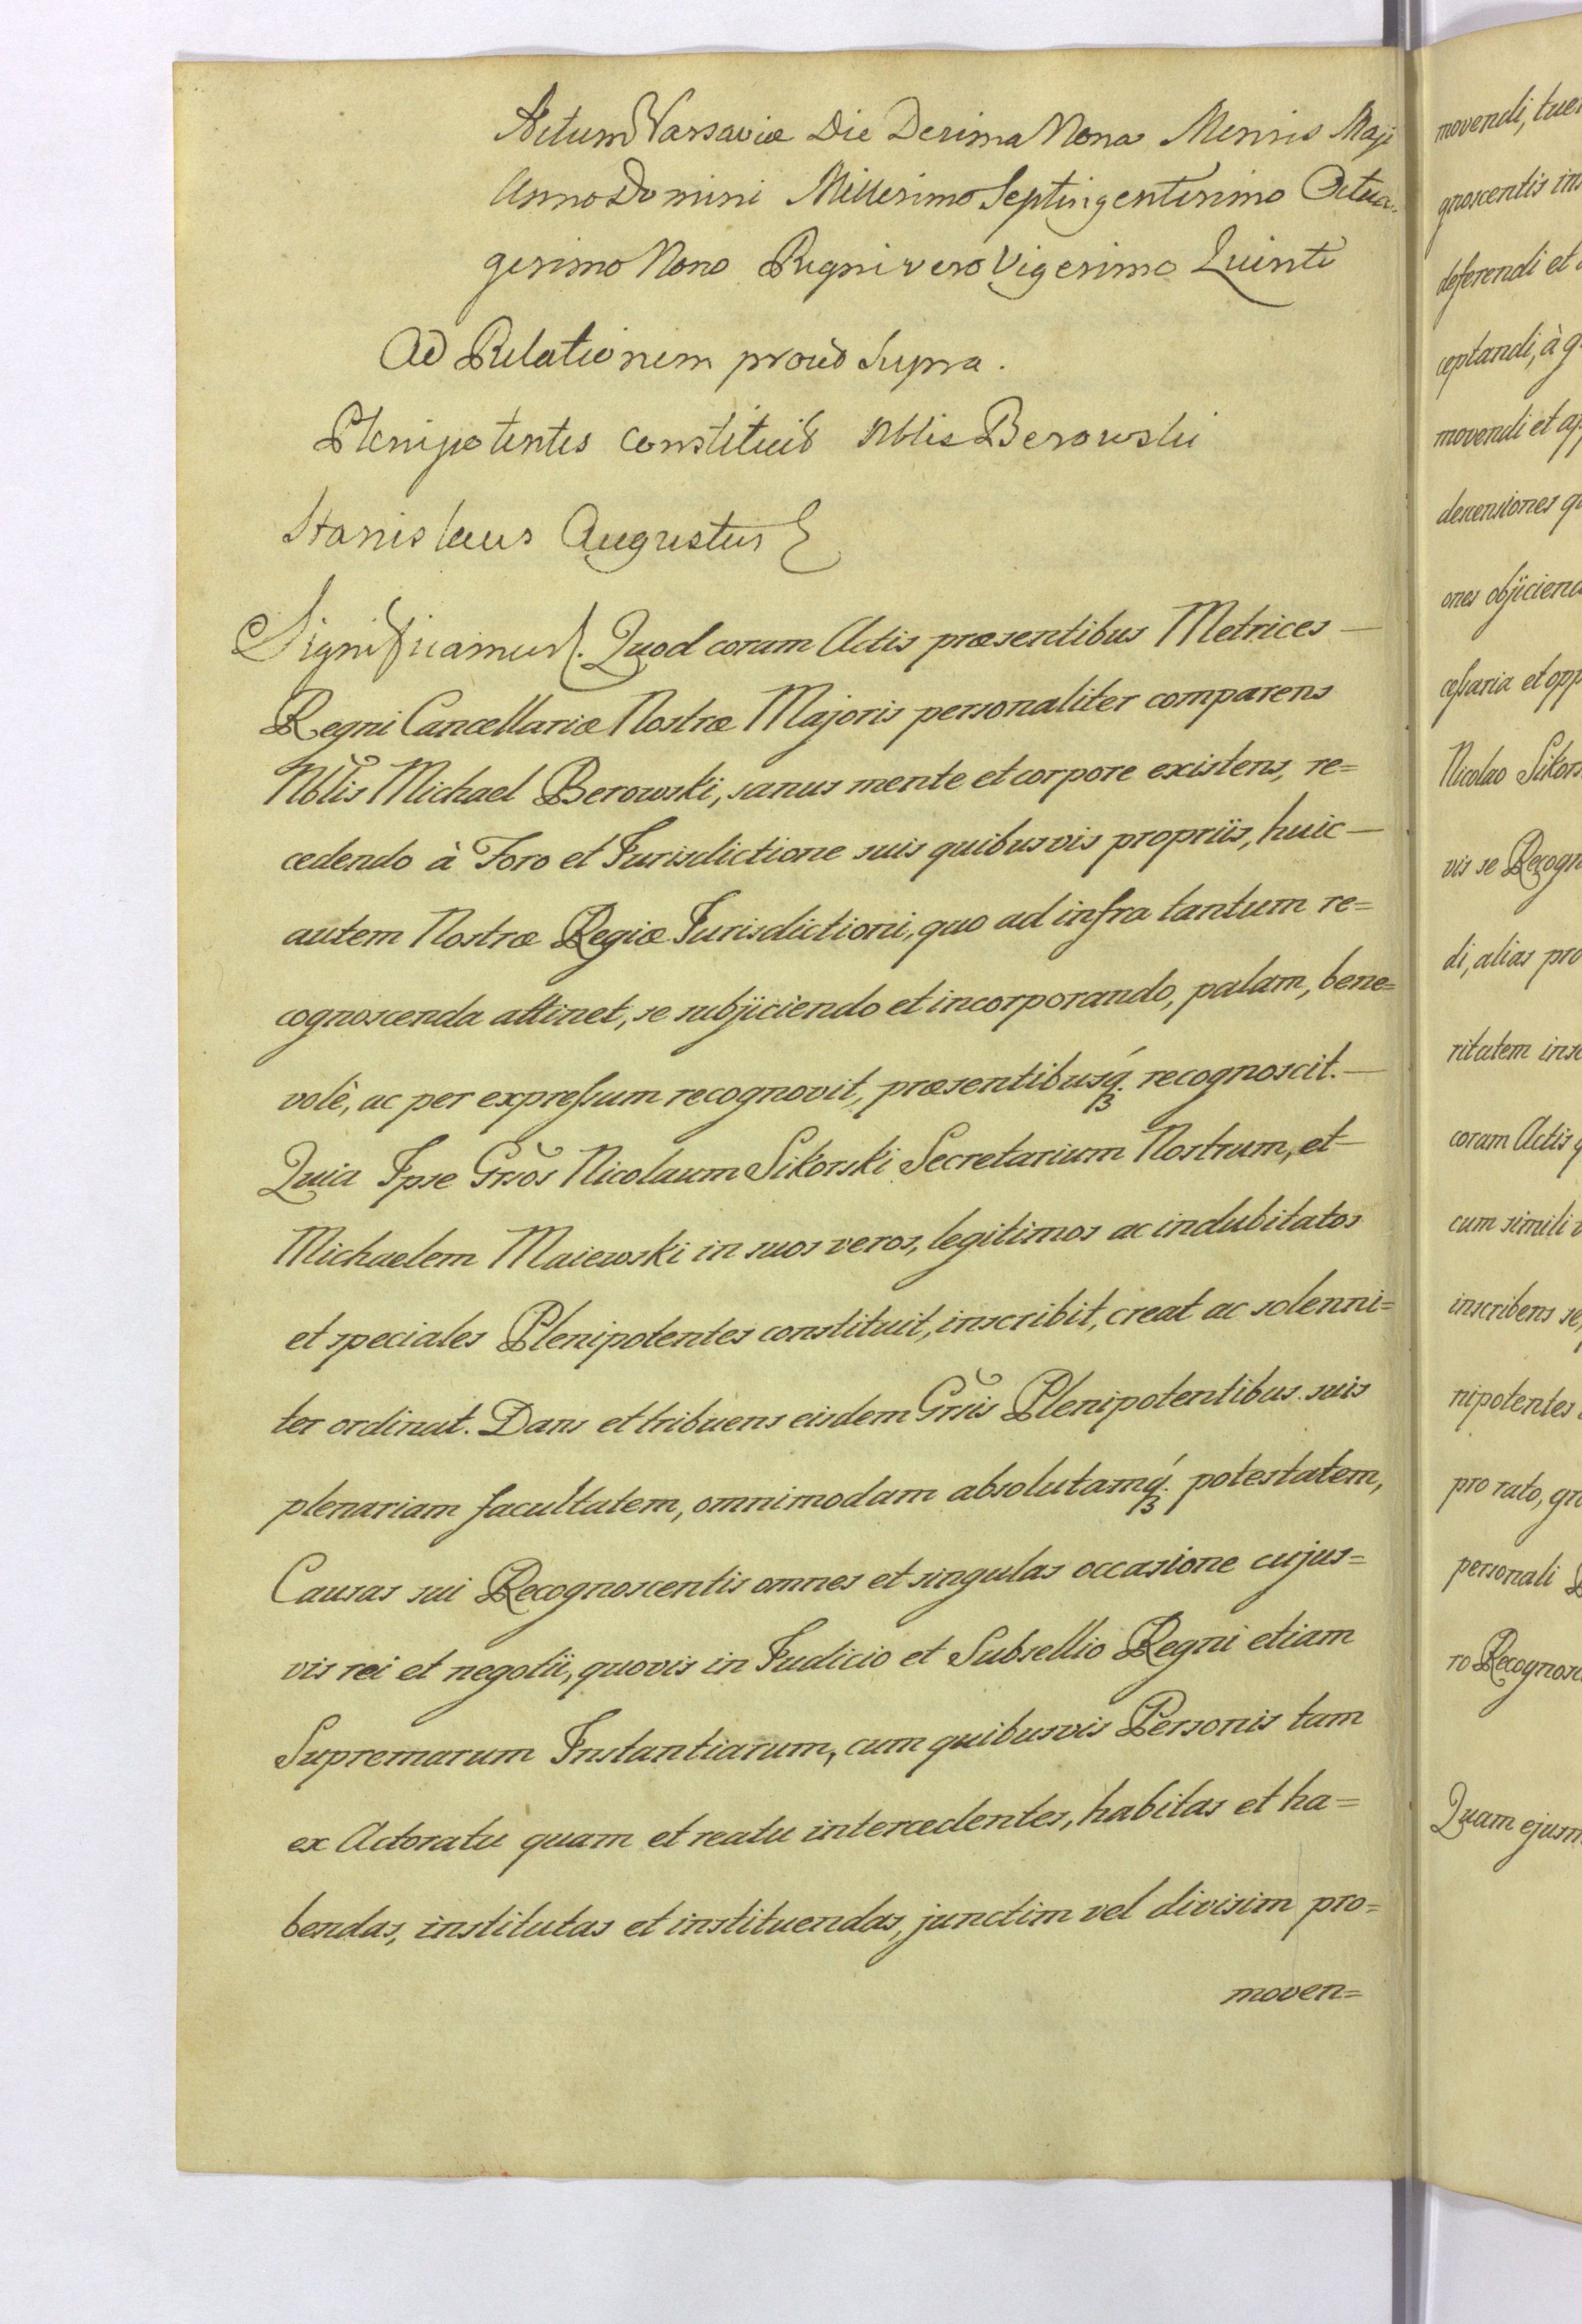 Actum Varsaviæ Die Decima Nona Mensis Maji
Anno Domini Millesimo Septingentesimo Octua-
gesimo Nono Regni vero Vigesimo Quinto
Ad Relationem prout supra.
Plenipotentes constituit Nblis Berowski
Stanislaus Augustus
Significamus. Quod coram Actis præsentibus Metrices —
Regni Cancellariæ Nostræ Majoris personaliter comparens
Nblis Michael Berowski, sanus mente et corpore existens, re=
cedendo à Foro et Jurisdictione suis quibusvis propriis, huic —
autem Nostræ Regiæ Jurisdictioni, quo ad infra tantum re=
cognoscenda attinet, se subjiciendo et incorporando, palam, bene=
volè, ac per expreſsum recognovit, præsentibusq́. recognoscit. —
Quia Ipse Grsos Nicolaum Sikorski Secretarium Nostrum, et —
Michaelem Maiewski in suos veros, legitimos ac indubitatos
et speciales Plenipotentes constituit, inscribit, creat ac solenni=
ter ordinat. Dans et tribuens eisdem Grsis Plenipotentibus suis
plenariam facultatem, omnimodam absolutamq́. potestatem,
Causas sui Recognoscentis omnes et singulas occasione cujus=
vis rei et negotii, quovis in Judicio et Subsellio Regni etiam
Supremarum Instantiarum, cum quibusvis Personis tam
ex Actoratu quam et reatu intercedentes, habitas et ha=
bendas, institutas et instituendas, junctim vel divisim pro=
moven=
movendi, tue
gnoscentis in
deferendi et
ceptandi, à
movendi et
descensiones
ones objiciend
ceſsaria et opp
Nicolao Sikors
vis se Recogn
di, alias pro
ritatem ins
coram Actis
cum simili
inscribens se,
nipotentes
pro rato, gr
personali
ro Recognosc
Quam ejusm